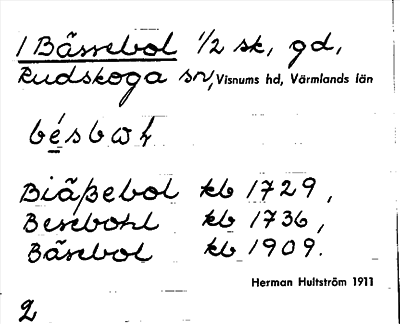 1 Bässebol 1/2 sk, gd,
Rudskoga sn, Visnums hd, Värmlands län
Biäßebol kb 1729,
Besebohl kb 1736,
Bäsebol kb 1909.
Herman Hultström 1911
2